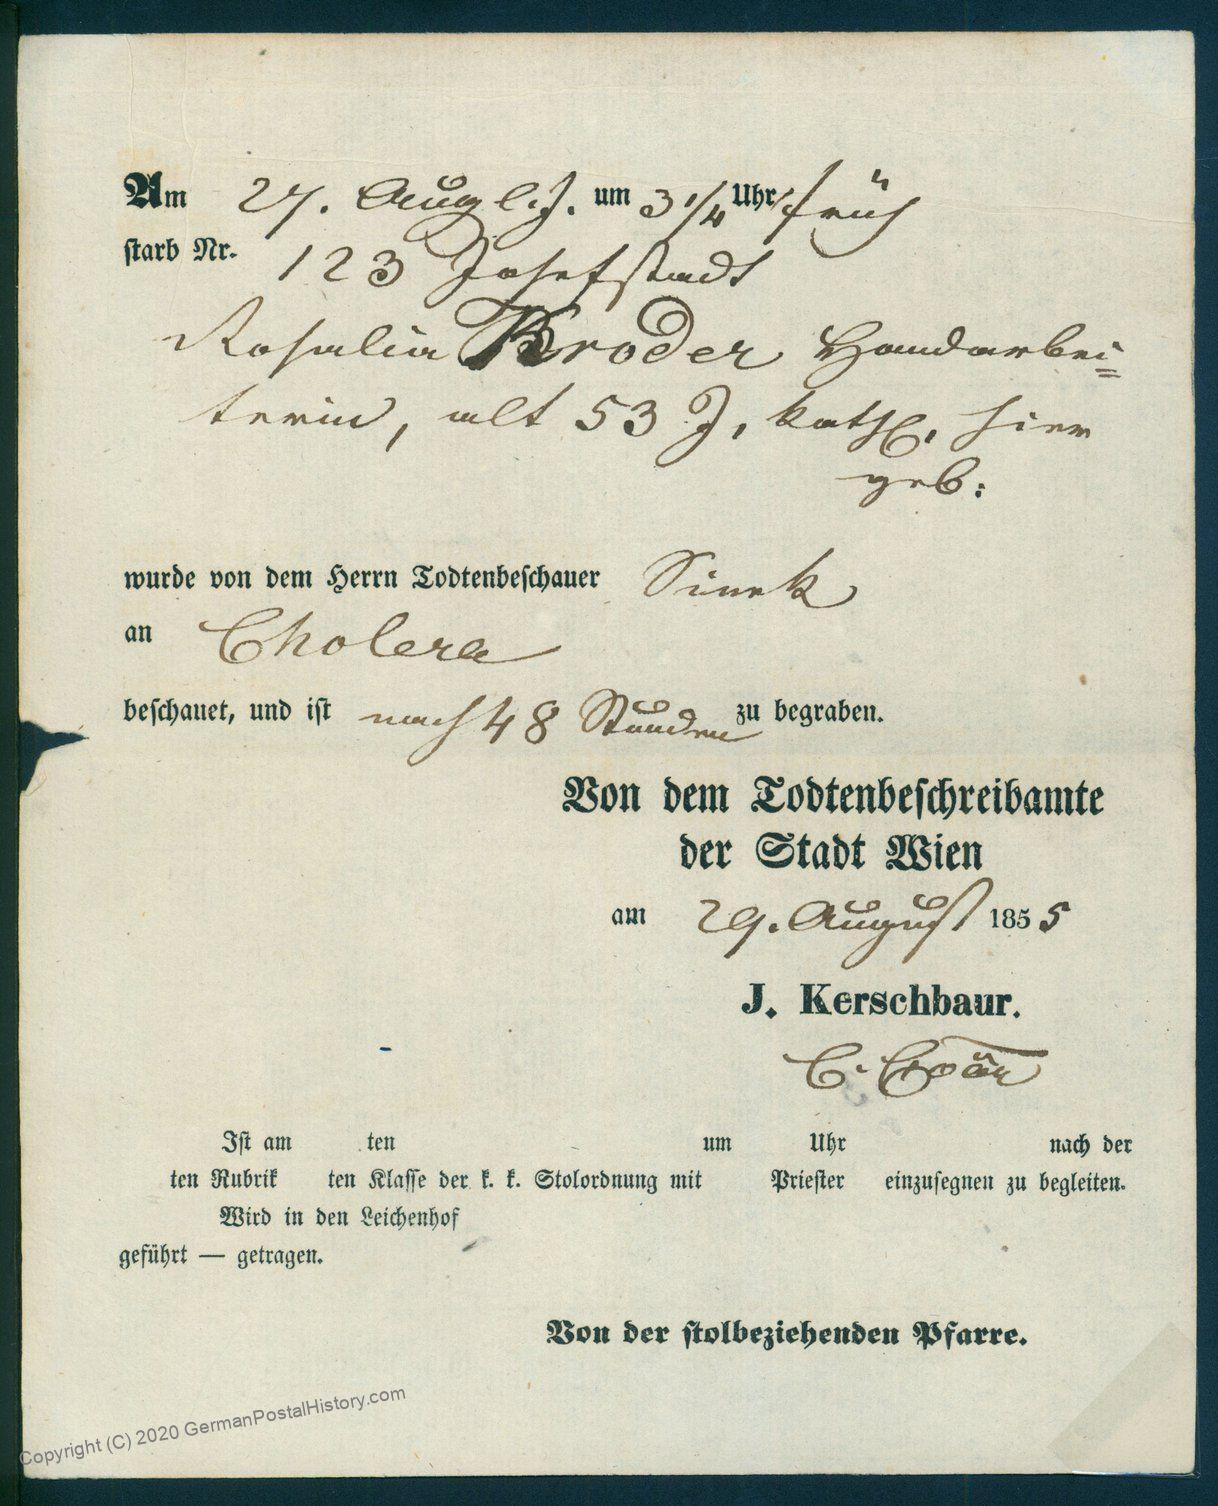 Am 27. Aug l. J. um 3 1/4 Uhr früh
starb Nr. 123 Josefstadt
Rosalia Broder Handarbei=
terin, alt 53 J, kath, hier
geb:
wurde von dem Herrn Todtenbeschauer
an Cholera
beschauet, und ist nach 48 Stunden zu begraben.
Von dem Todtenbeschreibamte
der Stadt Wien
am 29. August 1855
J. Kerschbaur.
Ist am ten um Uhr nach der
ten Rubrik ten Klasse der k. k. Stolordnung mit Priester einzusegnen zu begleiten.
Wird in den Leichenhof
geführt — getragen.
Von der stolbeziehenden Pfarre.
Copyright (C) 2020 GermanPostalHistory.com